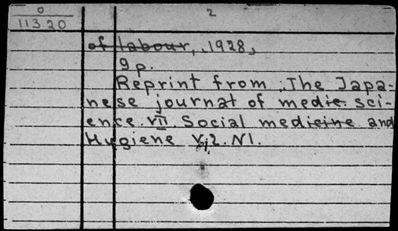 0
11320
2
of labour, 1928,
9p.
Reprint from "The Japa-
nese journal of medic. sci-
ence. VII Social medicine and
Hygiene V. 2. N1.